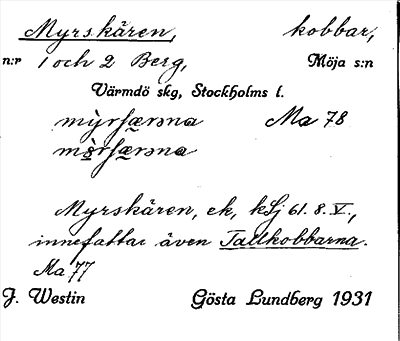 Myrskären, kobbar,
n:r 1 och 2 Berg, Möja s:n
Värmdö skg, Stockholms l.
Ma 78
Myrskären, ek, kSj 61. 8. V.,
innefattar även Tallkobbarna.
Ma 77
J. Westin Gösta Lundberg 1931